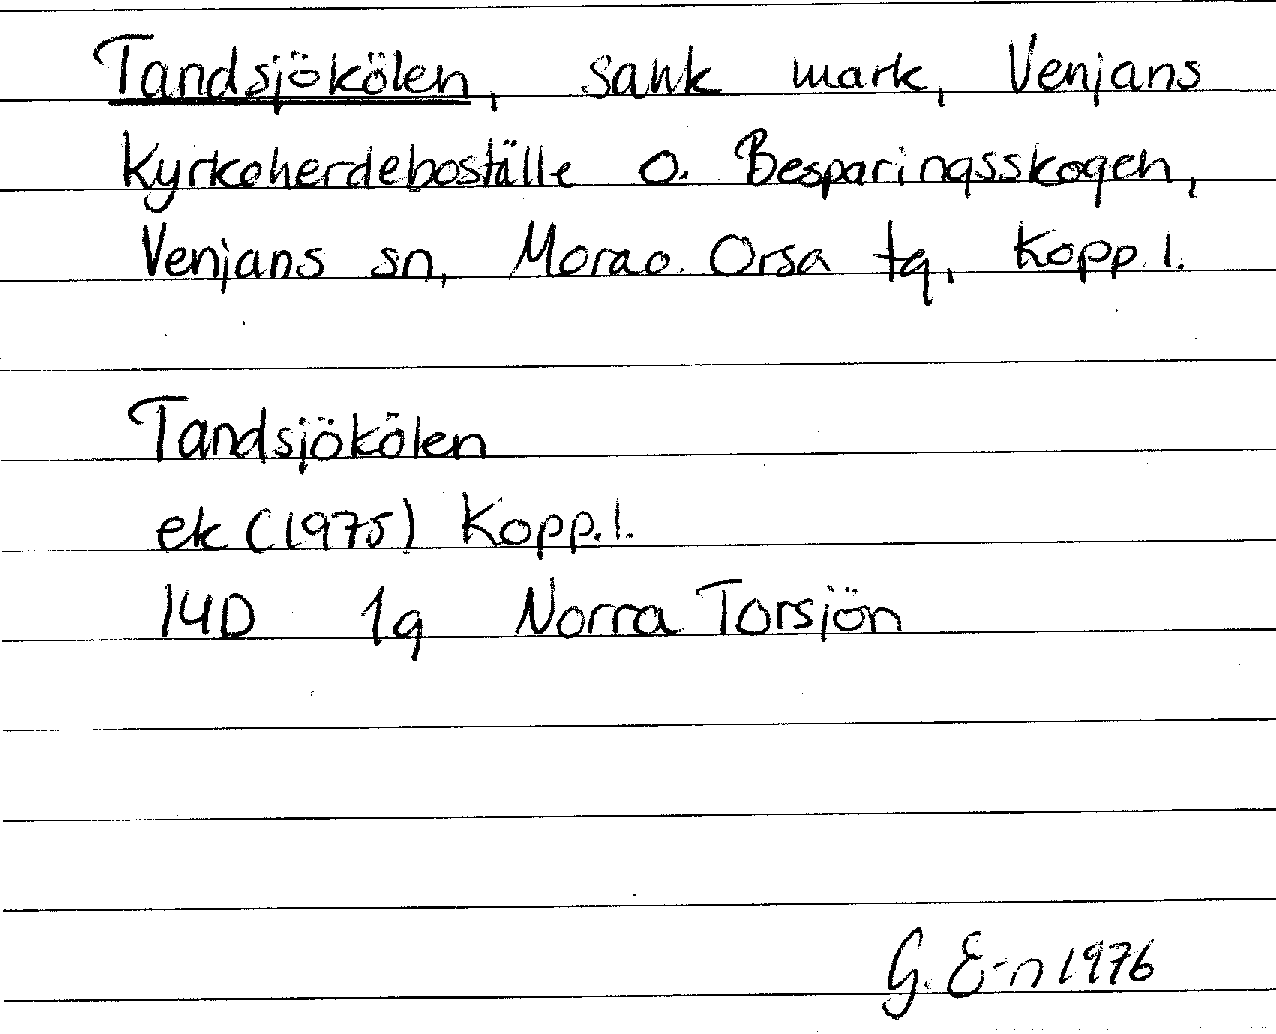 Tandsjökölen, sank mark, Venjans
Kyrkoherdeboställe o. Besparingsskogen,
Venjans sn, Mora o. Orsa tg, Kopp. l.
Tandsjökölen
ek (1975) Kopp. l.
14D 1g Norra Torsjön
G. E-n 1976